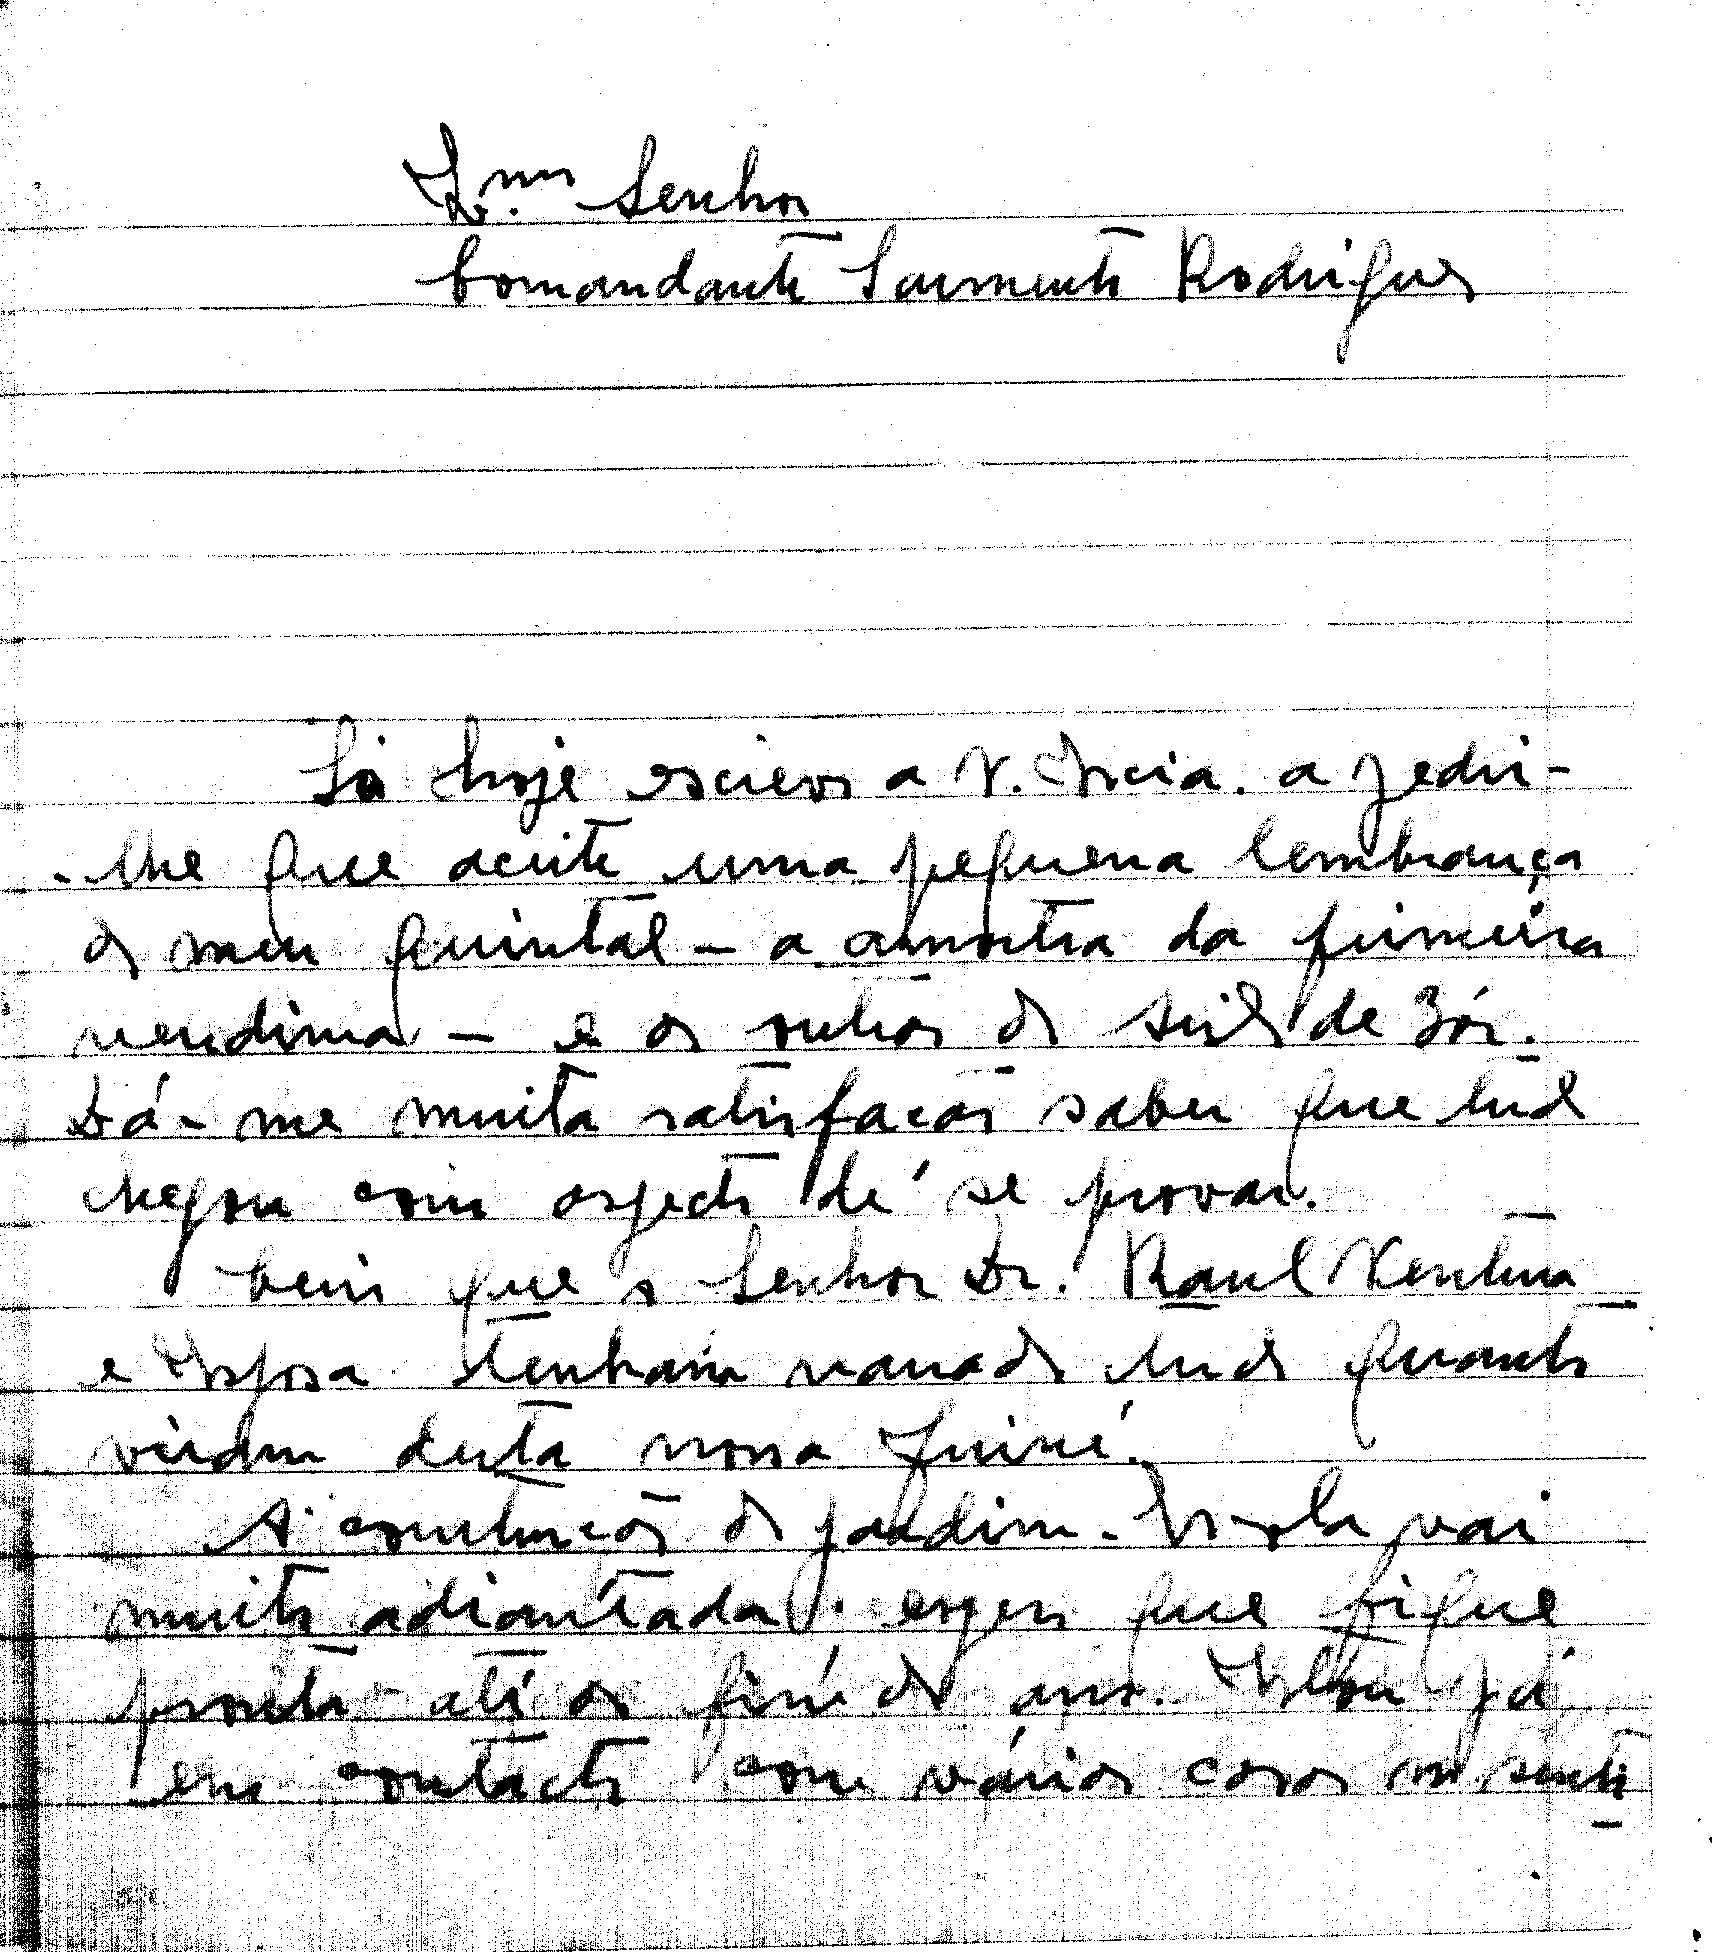 Exmo. Senhor
Comandante Sarmento Rodrigues
Só hoje escrevo a V. Excia. a pedir-
-lhe que aceite uma pequena lembrança
do meu quintal - a amostra da primeira
vendima - e os outros do sul de
Dá-me muita satisfação saber que tudo
chegou com aspecto de se provar.
bem que o Senhor Dr. Raul Ventura
e Esposa tenham tudo quanto
viram desta nossa Guiné.
A construção do jardim-Escola vai
muito adiantada: espero que fique
pronto até ao fim do ano. Estou já
em contacto com vários casas no sentido